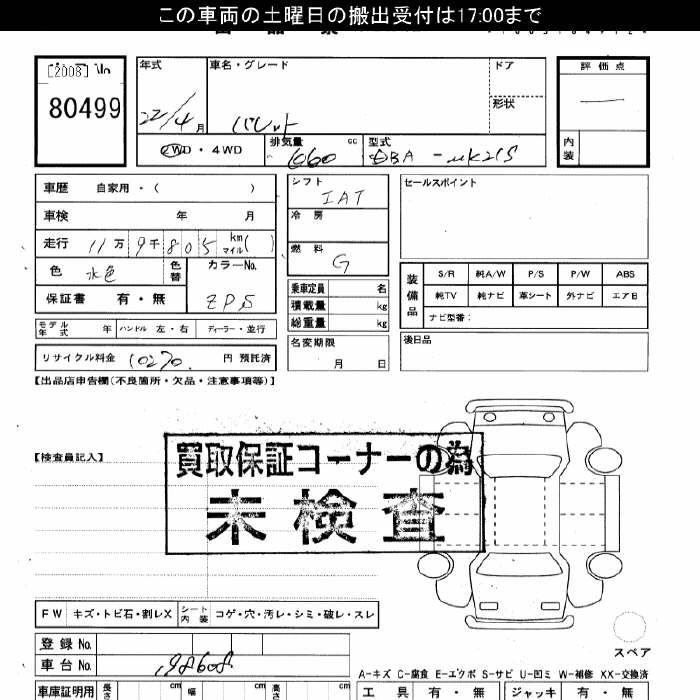 この車両の土曜日の搬出受付は17:00まで
[2008] No
80499
年式
22/4月
車名・グレード
パレット
ドア
形状
2WD・4WD
排気量
660 cc
型式
DBA-MK21S
評価点
―
内装
車歴 自家用・( )
車検 年 月
走行 11万9千805 km マイル( )
色 水色
色替
カラーNo.
ZPS
保証書 有・無
モデル年式 年 ハンドル 左・右 ディーラー・並行
リサイクル料金 10270 円 預託済
シフト
IAT
冷房
燃料
G
乗車定員 名
積載量 kg
総重量 kg
名変期限
月 日
セールスポイント
装備品
S/R 純A/W P/S P/W ABS
純TV 純ナビ 革シート 外ナビ エアB
ナビ型番:
後日品
【出品店申告欄(不良箇所・欠品・注意事項等)】
【検査員記入】
買取保証コーナーの為
未検査
FW キズ・トビ石・割レX シート内装 コゲ・穴・汚レ・シミ・破レ・スレ
登録No.
車台No. 198608
スペア
A-キズ C-腐食 E-エクボ S-サビ U-凹ミ W-補修 XX-交換済
車庫証明用 長さ cm 幅 cm 高さ cm
工具 有・無 ジャッキ 有・無